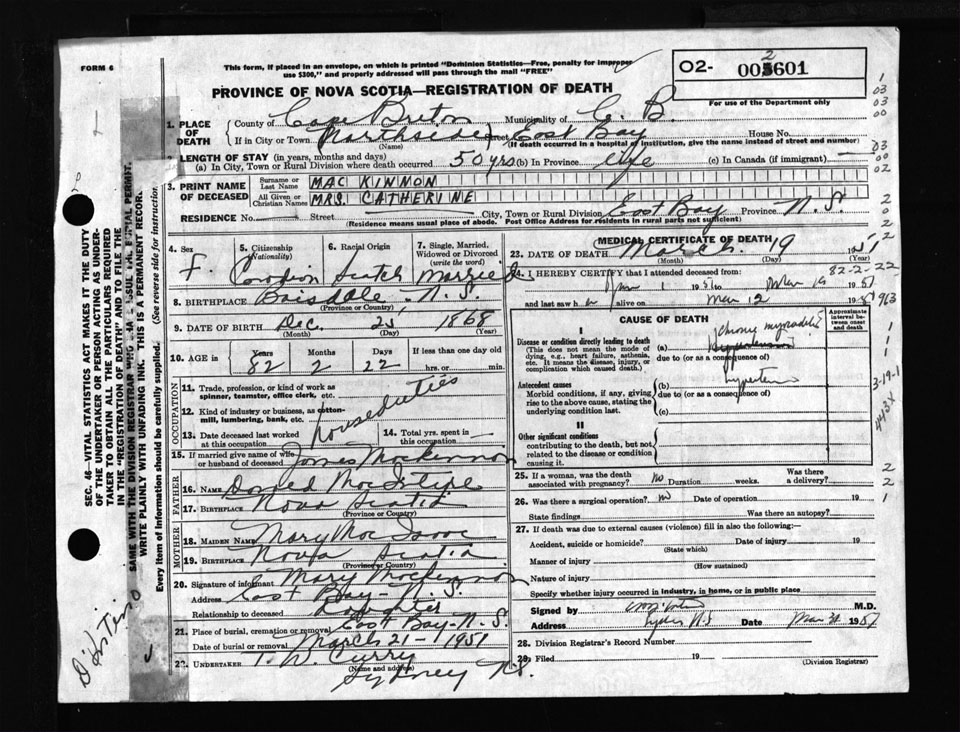 FORM 6
This form, if placed in an envelope, on which is printed "Dominion Statistics—Free, penalty for improper
use $300," and properly addressed will pass through the mail "FREE"
PROVINCE OF NOVA SCOTIA—REGISTRATION OF DEATH
O2- 601
For use of the Department only
1. PLACE OF DEATH
County of Cape Breton Municipality of C. B.
If in City or Town Northside Street East Bay House No.
(Name) (If death occurred in a hospital of institution, give the name instead of street and number)
2. LENGTH OF STAY (in years, months and days)
(a) In City, Town or Rural Division where death occurred 50 yrs (b) In Province life (c) In Canada (if immigrant) —
3. PRINT NAME OF DECEASED
Surname or Last Name MAC KINNON
All Given or Christian Names MRS. CATHERINE
RESIDENCE No. Street City, Town or Rural Division East Bay Province N. S.
(Residence means usual place of abode. Post Office Address for residents in rural parts not sufficient)
4. Sex F.
5. Citizenship (Nationality) Canadian
6. Racial Origin Scotch
7. Single, Married, Widowed or Divorced (write the word) Married
8. BIRTHPLACE Boisdale, N.S.
(Province or Country)
9. DATE OF BIRTH Dec. 25, 1868
(Month) (Day) (Year)
10. AGE in Years 82 Months 2 Days 22 If less than one day hrs. or min.
OCCUPATION
11. Trade, profession, or kind of work as spinner, teamster, office clerk, etc. House duties
12. Kind of industry or business, as cotton-mill, lumbering, bank, etc.
13. Date deceased last worked at this occupation
14. Total yrs. spent in this occupation
15. If married give name of wife or husband of deceased James Mackinnon
FATHER
16. NAME Donald Mac
17. BIRTHPLACE Nova Scotia
(Province or Country)
MOTHER
18. MAIDEN NAME Mary Mac Isaac
19. BIRTHPLACE Nova Scotia
(Province or Country)
20. Signature of informant Mary Mackinnon
Address East Bay - N. S.
Relationship to deceased Daughter
21. Place of burial, cremation or removal East Bay - N. S.
Date of burial or removal March 21 - 1951
22. UNDERTAKER T. W. Curry
(Name and address)
Sydney N.S.
MEDICAL CERTIFICATE OF DEATH
23. DATE OF DEATH March 19 1951
(Month) (Day)
24. I HEREBY CERTIFY that I attended deceased from
1 1951 to Mar 1951
and last saw h alive on Mar 12 1951
82-2-22
963
CAUSE OF DEATH
Approximate interval between onset and death
I
Disease or condition directly leading to death
(This does not mean the mode of dying, e.g., heart failure, asthenia, etc. It means the disease, injury, or complication which caused death.)
(a) chronic
due to (or as a consequence of)
Antecedent causes
Morbid conditions, if any, giving rise to the above cause, stating the underlying condition last.
(b)
due to (or as a consequence of)
(c)
II
Other significant conditions
contributing to the death, but not related to the disease or condition causing it.
3-19-1
443X
25. If a woman, was the death associated with pregnancy? no Duration weeks. Was there a delivery?
26. Was there a surgical operation? no Date of operation 19
State findings Was there an autopsy?
27. If death was due to external causes (violence) fill in also the following:—
Accident, suicide or homicide? Date of injury 19
(State which)
Manner of injury
(How sustained)
Nature of injury
Specify whether injury occurred in industry, in home, or in public place
Signed by M.D.
Address Sydney N S Date Mar 1951
28. Division Registrar's Record Number
29. Filed 19
(Division Registrar)
SEC. 46—VITAL STATISTICS ACT MAKES IT THE DUTY
OF THE UNDERTAKER OR PERSON ACTING AS UNDER-
TAKER TO OBTAIN ALL THE PARTICULARS REQUIRED
IN THE "REGISTRATION OF DEATH" AND TO FILE THE
SAME WITH THE DIVISION REGISTRAR WHO SHALL ISSUE THE BURIAL PERMIT.
WRITE PLAINLY WITH UNFADING INK. THIS IS A PERMANENT RECORD.
Every item of Information should be carefully supplied. (See reverse side for instructions